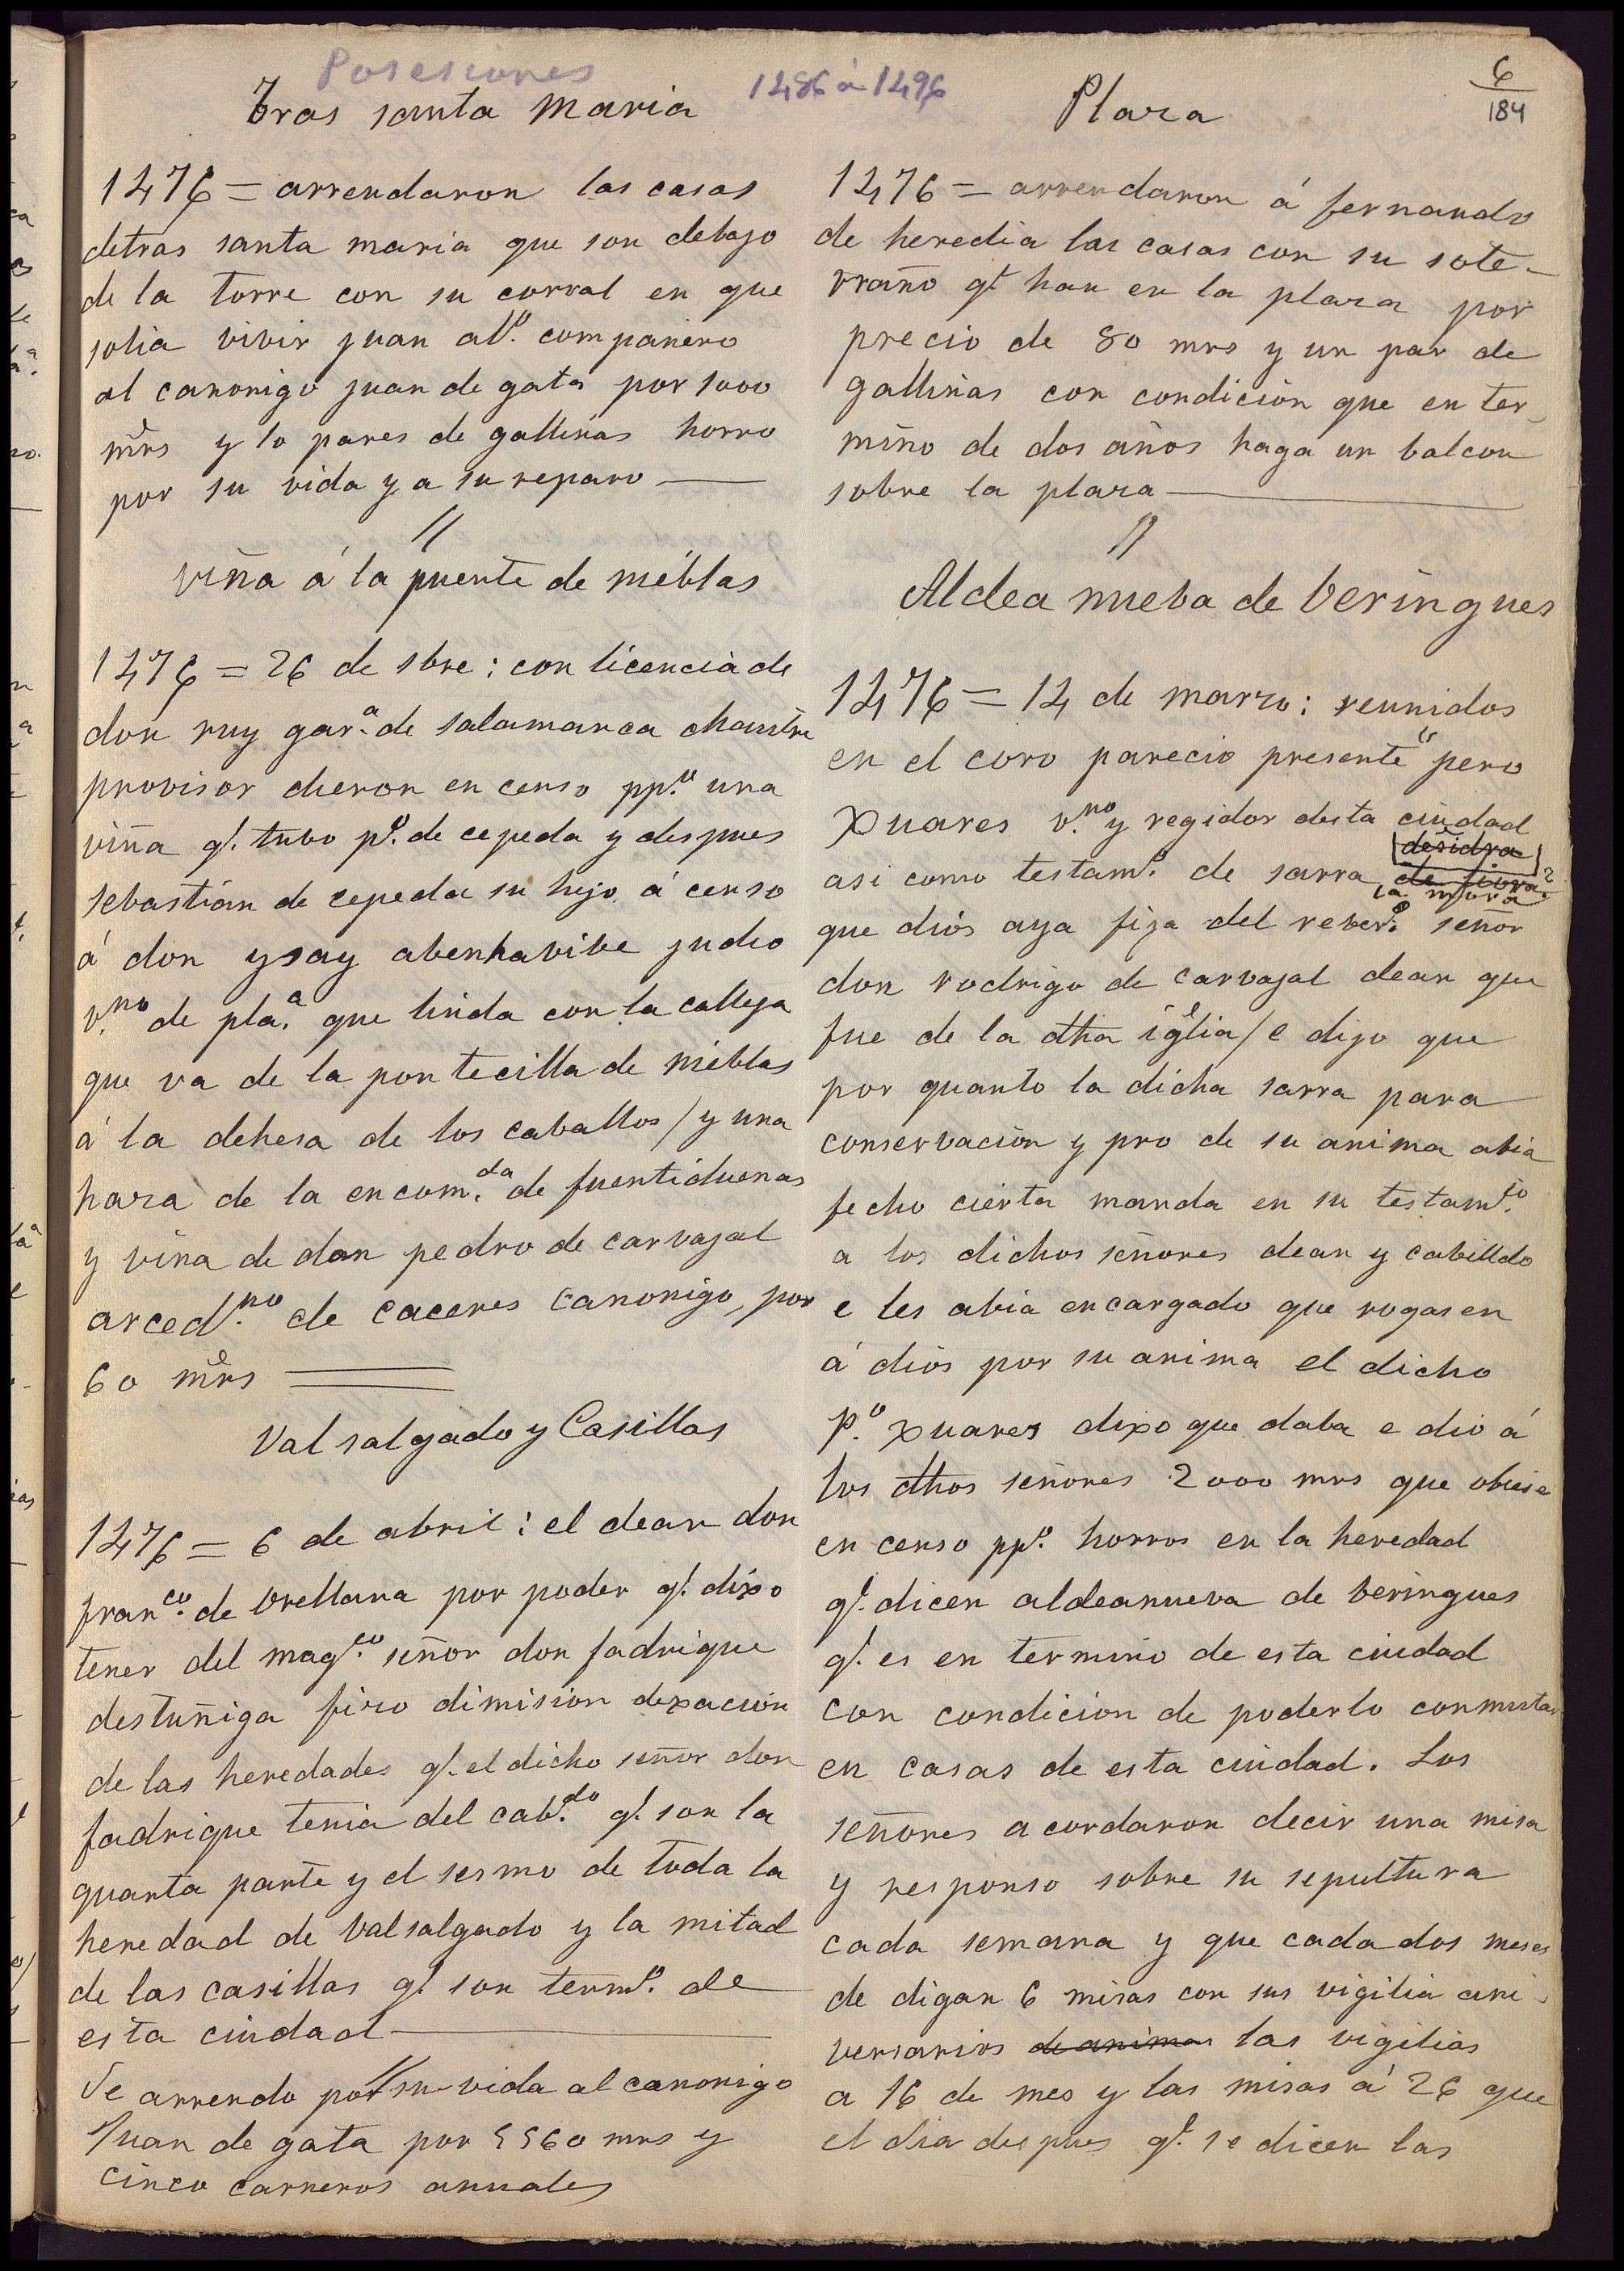 Posesiones
1486 á 1496
6
184
Tras santa Maria
1476 = arrendaron las casas
detras santa maria que son debajo
de la torre con su corral en que
solia vivir juan alº. compañero
al canonigo juan de gata por 1000
mrs y 10 pares de gallinas horro
por su vida y a su reparo —
//
viña á la puente de nieblas
1476 = 26 de sbre: con licencia de
don ruy gar.ª de salamanca chantre
provisor dieron en censo pp.º una
viña q.! tubo p.º de cepeda y despues
sebastián de cepeda su hijo á censo
á don ysay abenhavibe judio
v.no de pla.ª que linda con la calleja
que va de la pontecilla de nieblas
á la dehesa de los caballos / y una
haza de la encom.da de fuentidueñas
y viña de don pedro de carvajal
arced.no de caceres canonigo, por
60 mrs ═
Val salgado y Casillas
1476 = 6 de abril: el dean don
fran.co de Orellana por poder q.! dixo
tener del mag.co señor don fadrique
destuñiga fizo dimision dexacion
de las heredades q.! el dicho señor don
fadrique tenia del cab.do q.! son la
quarta parte y el sesmo de toda la
heredad de Valsalgado y la mitad
de las casillas q.! son term.º de
esta ciudad —
//
Se arrendo por su vida al canonigo
Juan de gata por 5560 mrs y
cinco carneros anuales
Plaza
1476 = arrendaron á fernando
de heredia las casas con su sote-
rraño q! han en la plaza por
precio de 80 mrs y un par de
gallinas con condición que en ter-
mino de dos años haga un balcon
sobre la plaza —
//
Aldea nueba de beringues
1476 = 14 de marzo: reunidos
en el coro parecio presente pero
xuares v.no y regidor desta ciudad
asi como testam.º de sarra
la mora
que diós aya fija del rever.º señor
don rodrigo de carvajal dean que
fue de la dha iglia / e dijo que
por quanto la dicha sarra para
conservación y pro de su anima abia
fecho cierta manda en su testam.to
a los dichos señores dean y cabilldo
e les abia encargado que rogasen
á diós por su anima el dicho
p.º xuares dixo que daba e dio á
los dhos señores 2000 mrs que obiese
en censo pp.º horros en la heredad
q.! dicen aldeanueva de beringues
q.! es en termino de esta ciudad
con condicion de poderlo conmutar
en casas de esta ciudad. Los
señores acordaron decir una misa
y responso sobre su sepultura
cada semana y que cada dos meses
de digan 6 misas con sus vigilia ani-
versarios de animas las vigilias
a 16 de mes y las misas á 26 que
el dia despues q.! se dicen las